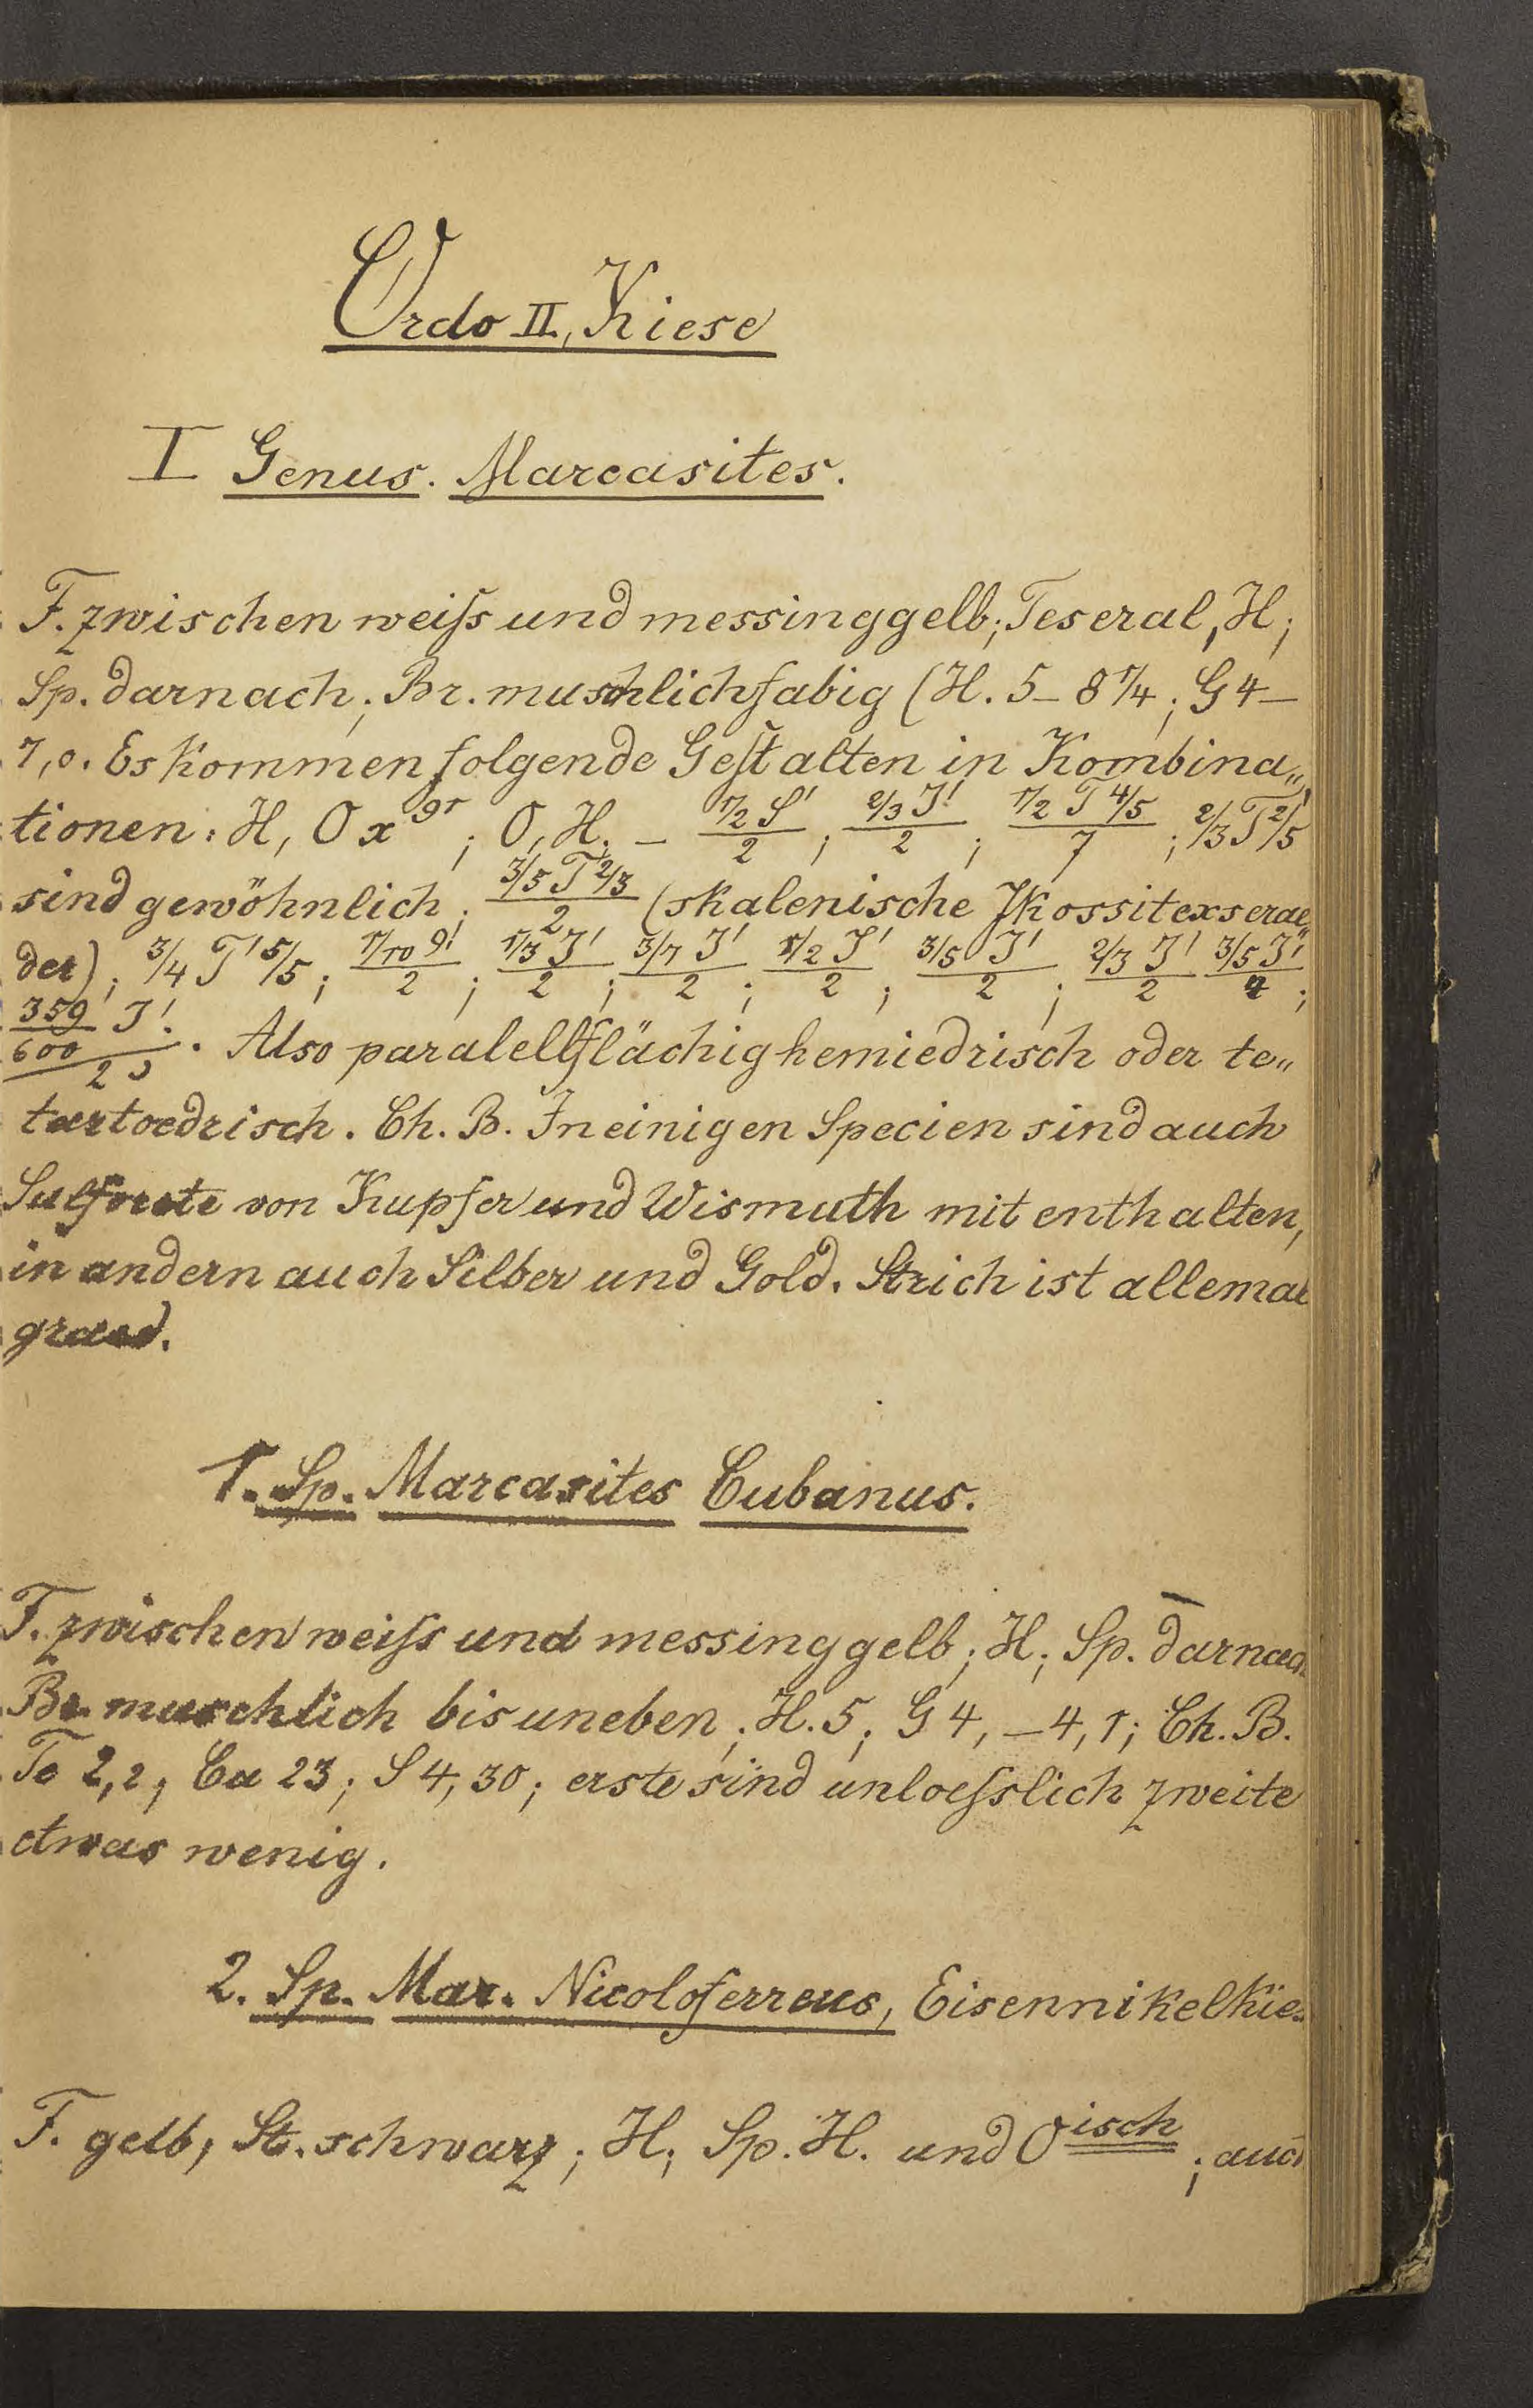 Ordo II, Kiese
I Genus. Marcasites.
F. zwischen weiſs und messinggelb; Teseral, H;
Sp. darnach; Br. muschlichfabig (H. 5_ 8 1/4; G 4_
7,0. Es kommen folgende Geſtalten in Kombina„
tionen: H, O x 91; O, H. – 1/2 S' / 2; 2/3 J' / 2; 1/2 T 4/5 / 7; 2/3 T 2/5
sind gewöhnlich; 3/5 T 2/3 / 2 (skalenische Ikossitexserae„
der); 3/4 T' 5/5; 1/10 9! / 2; 1/3 J' / 2; 3/7 J' / 2; 1/2 J' / 2; 3/5 J' / 2; 2/3 J' / 2 3/5 J' / 2;
359/600 J' / 2. Also paralellflächig hemiedrisch oder te„
tartoedrisch. Ch. B. In einigen Specien sind auch
von Kupfer und Wismuth mit enthalten,
in andern auch Silber und Gold. Strich ist allemal
1. Sp. Marcasites Cubanus.
F. zwischen weiſs und messinggelb; H; Sp. darnach
Br. muschlich bis uneben; H. 5; G 4, _ 4,1; Ch. B.
2,2; Cu 23; S 4,30; erste sind unloeſslich zweite
etwas wenig.
2. Sp. Mar. Nicoloferreus, Eisennikelkie„
F. gelb, St. schwarz; H; Sp. H. und O isch; auch